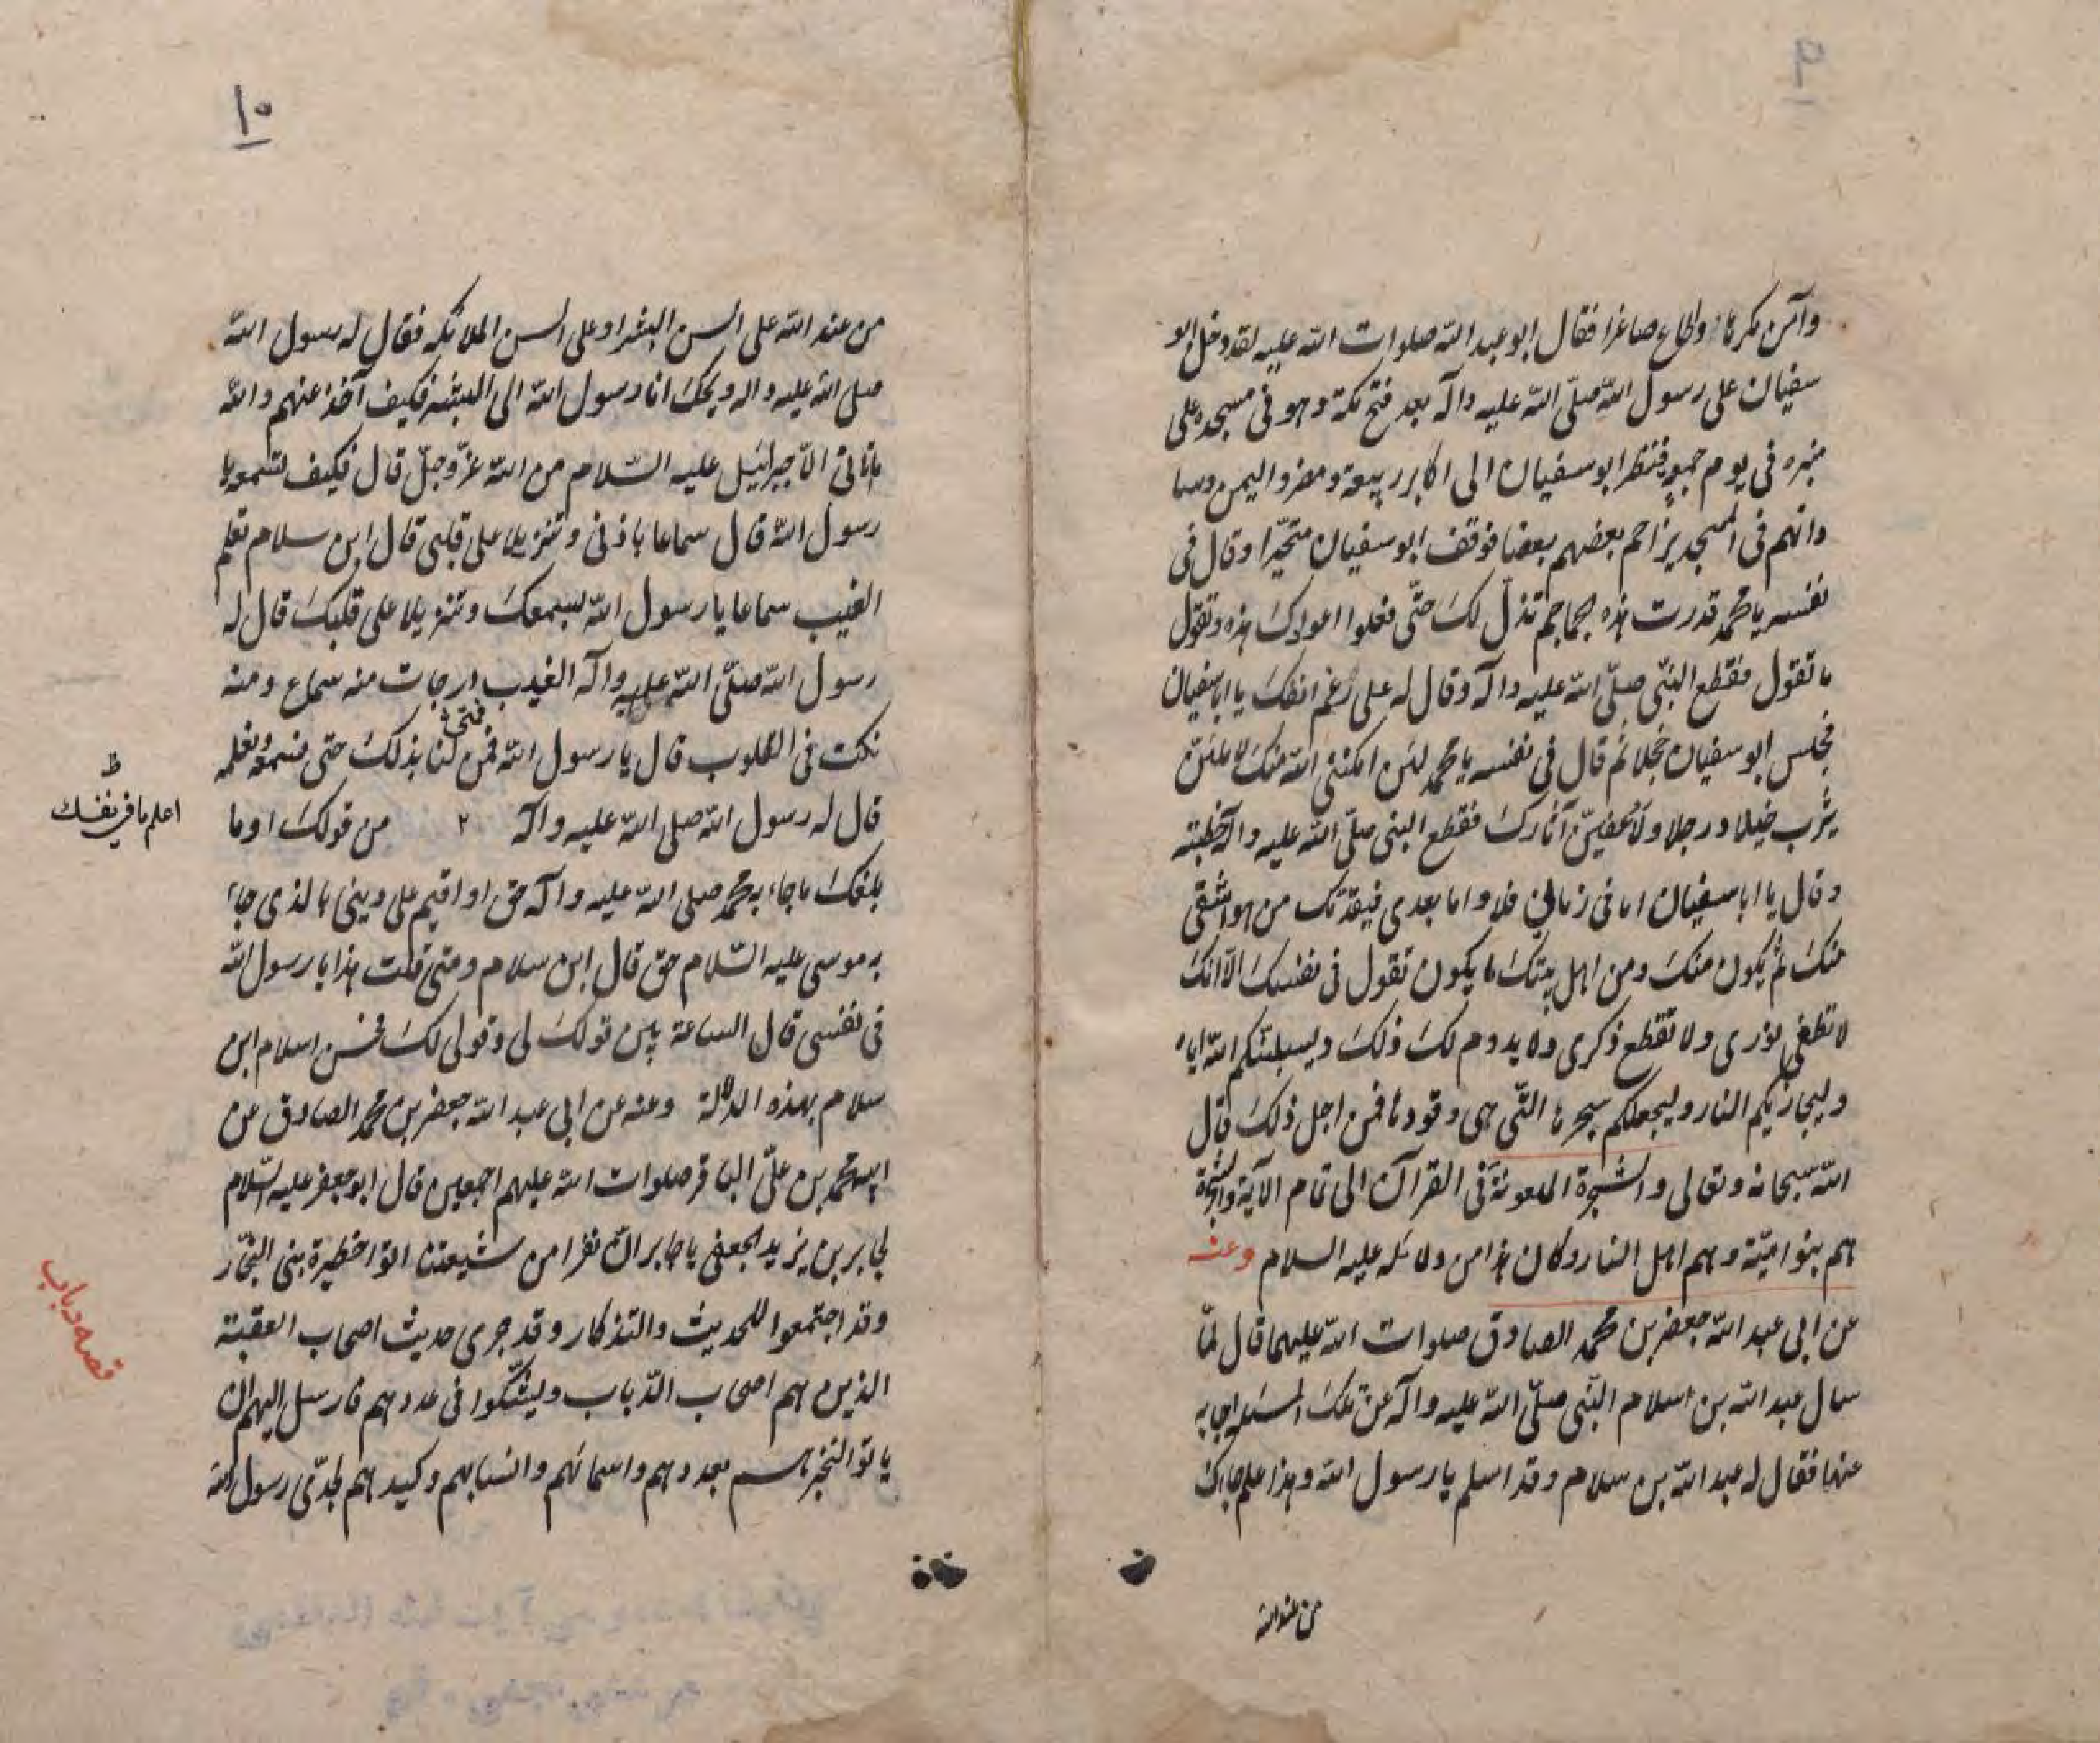 وآمن مكرها وطاع صاغرا فقال ابو عبد الله صلوات الله عليه لقد دخل ابو
سفيان على رسول الله صلّى الله عليه وآله بعد فتح مكة وهو فى مسجده على
منبره فى يوم جمعة فنظر ابو سفيان الى اكابر ربيعة ومضر واليمن وسا
داتهم فى المسجد يزاحم بعضهم بعضا فوقف ابو سفيان متحيّرا وقال فى
نفسه يا محمد قدرت هذه الجماجم تذلّ لك حتّى تعلوا اعوادك هذه وتقول
ما تقول فقطع النبّى صلّى الله عليه وآله وقال له على رغم انفك يا اباسفيان
فجلس ابو سفيان خجلا ثم قال فى نفسه يا محمد لئن امكننى الله منك لاملئنّ
يثرب خيلا ورجلا ولاعفينّ آثارك فقطع النبى صلّى الله عليه وآله خطبته
وقال يا ابا سفيان اما فى زمانى فلا واما بعدى فيقدّمك من هو اشقى
منك ثم يكون منك ومن اهل بيتك ما يكون تقول فى نفسك الّا انك
لا تطفى نورى ولا تقطع ذكرى ولا يدوم لك ذلك وليسلبنّكم الله اياه
وليجازيكم النار وليجعلكم سجرها التّى هى وقودها فمن اجل ذلك قال
الله سبحانه وتعالى والشجرة الملعونة فى القرآن الى تمام الآية والشجرة
هم بنو اميّة وهم اهل النار وكان هذا من دلائله عليه السلام وعنه
عن ابى عبد الله جعفر بن محمد الصادق صلوات الله عليهما قال لمّا
سال عبد الله بن سلام النبّى صلّى الله عليه وآله عن تلك المسئله اجابه
عنها فقال له عبد الله بن سلام وقد اسلم يا رسول الله وهذا علم جاءك
من عند الله
١٠
من عند الله على السن البشر او على السن الملائكه فقال له رسول الله
صلى الله عليه واله ويحك انا رسول الله الى البشر فكيف آخذ عنهم والله
ما اتانى الّا جبرائيل عليه السّلام من الله عزّ وجلّ قال فكيف تسمعه يا
رسول الله قال سماعا باذنى وتنزيلا على قلبى قال ابن سلام تعلم
الغيب سماعا يا رسول الله بسمعك وتنزيلا على قلبك قال له
رسول الله صلّى الله عليه وآله الغيب درجات منه سماع ومنه
نكت فى القلوب قال يا رسول الله فمن لنا بذلك حتى نسمعه ونعلمه
قال له رسول الله صلى الله عليه وآله ٢ من قولك او ما
اعلم ما فى نفسك
يلفك ما جاء به محمد صلى الله عليه وآله حق او اقيم على دينى ما لذى جاء
به موسى عليه السّلام حق قال ابن سلام ومتى قلت هذا يا رسول الله
فى نفسى قال الساعة بين قولك لى وقولى لك فحسن اسلام ابن
سلام بهذه الدلالة وعنه عن ابى عبد الله جعفر بن محمد الصادق عن
ابيه محمد بن علىّ الباقر صلوات الله عليهم اجمعين قال ابو جعفر عليه السّلام
لجابر بن يزيد الجعفى يا جابر انّ نفرا من شيعتنا اتوا حظيرة بنى النجّار
وقد اجتمعوا للحديث والتذكار وقد جرى حديث اصحاب العقبة
الذين هم اصحاب الدّباب ويشكّوا فى عددهم فارسل اليهم ان
قصه دباب
ياتوا لنخبرهم بعددهم واسمائهم وانسابهم وكيدهم لجدّى رسول الله